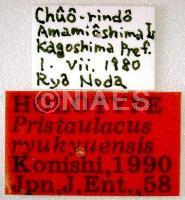 Chûô-rindô
Amamiôshima Is
Kagoshima Pref.
1. vii. 1980
Ryô Noda
©NIAES
HOLOTYPE
Pristaulacus
ryukyuensis
Konishi, 1990
Jpn. J. Ent., 58